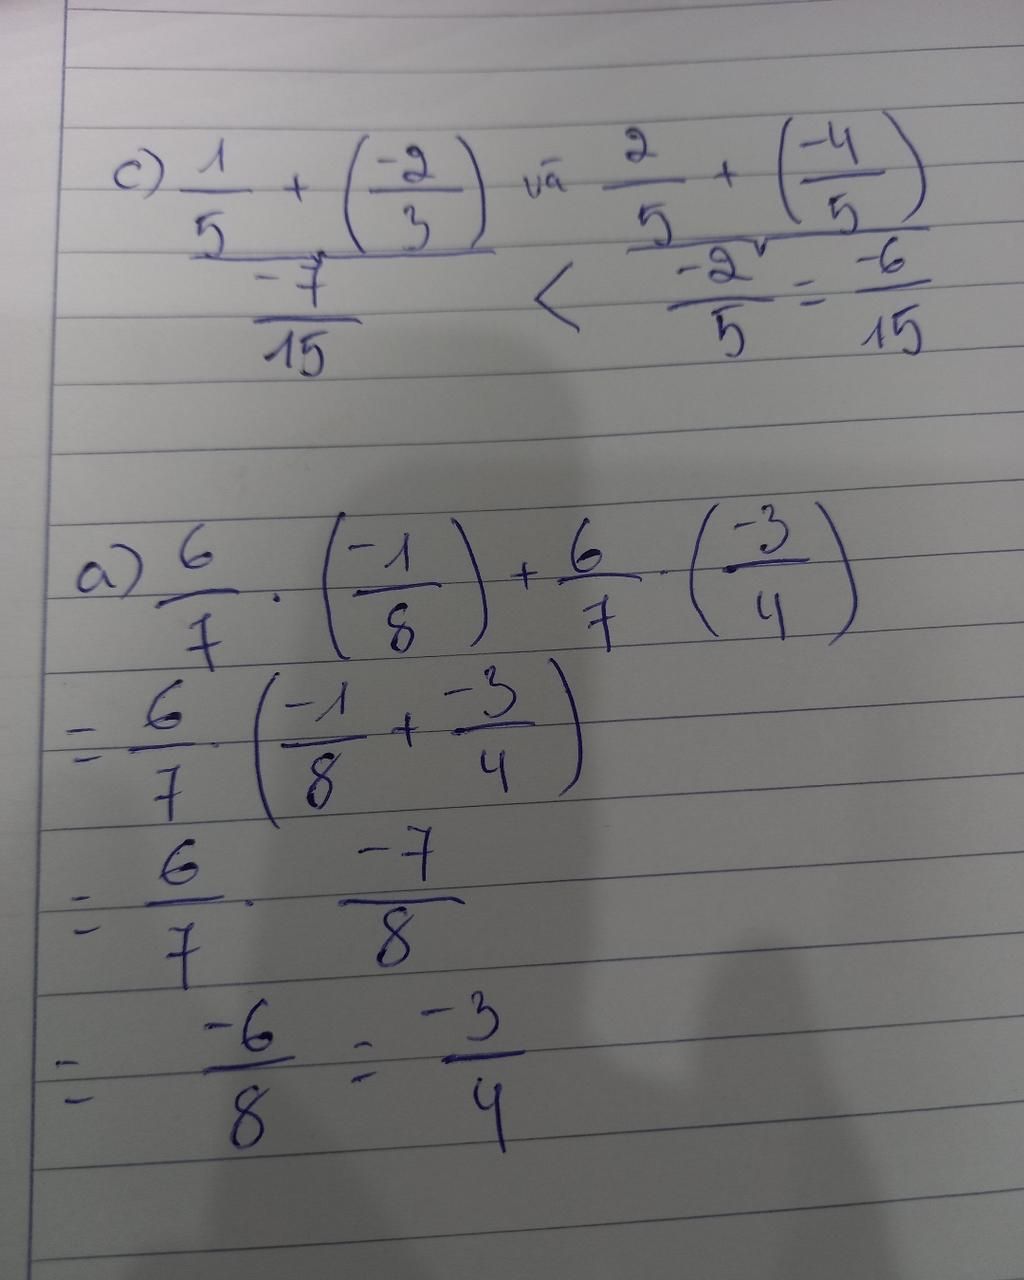 c) 1/5 + (-2/3) và 2/5 + (-4/5)
-7/15 < -2/5 = -6/15
a) 6/7 . (-1/8) + 6/7 . (-3/4)
= 6/7 . (-1/8 + -3/4)
= 6/7 . -7/8
= -6/8 = -3/4